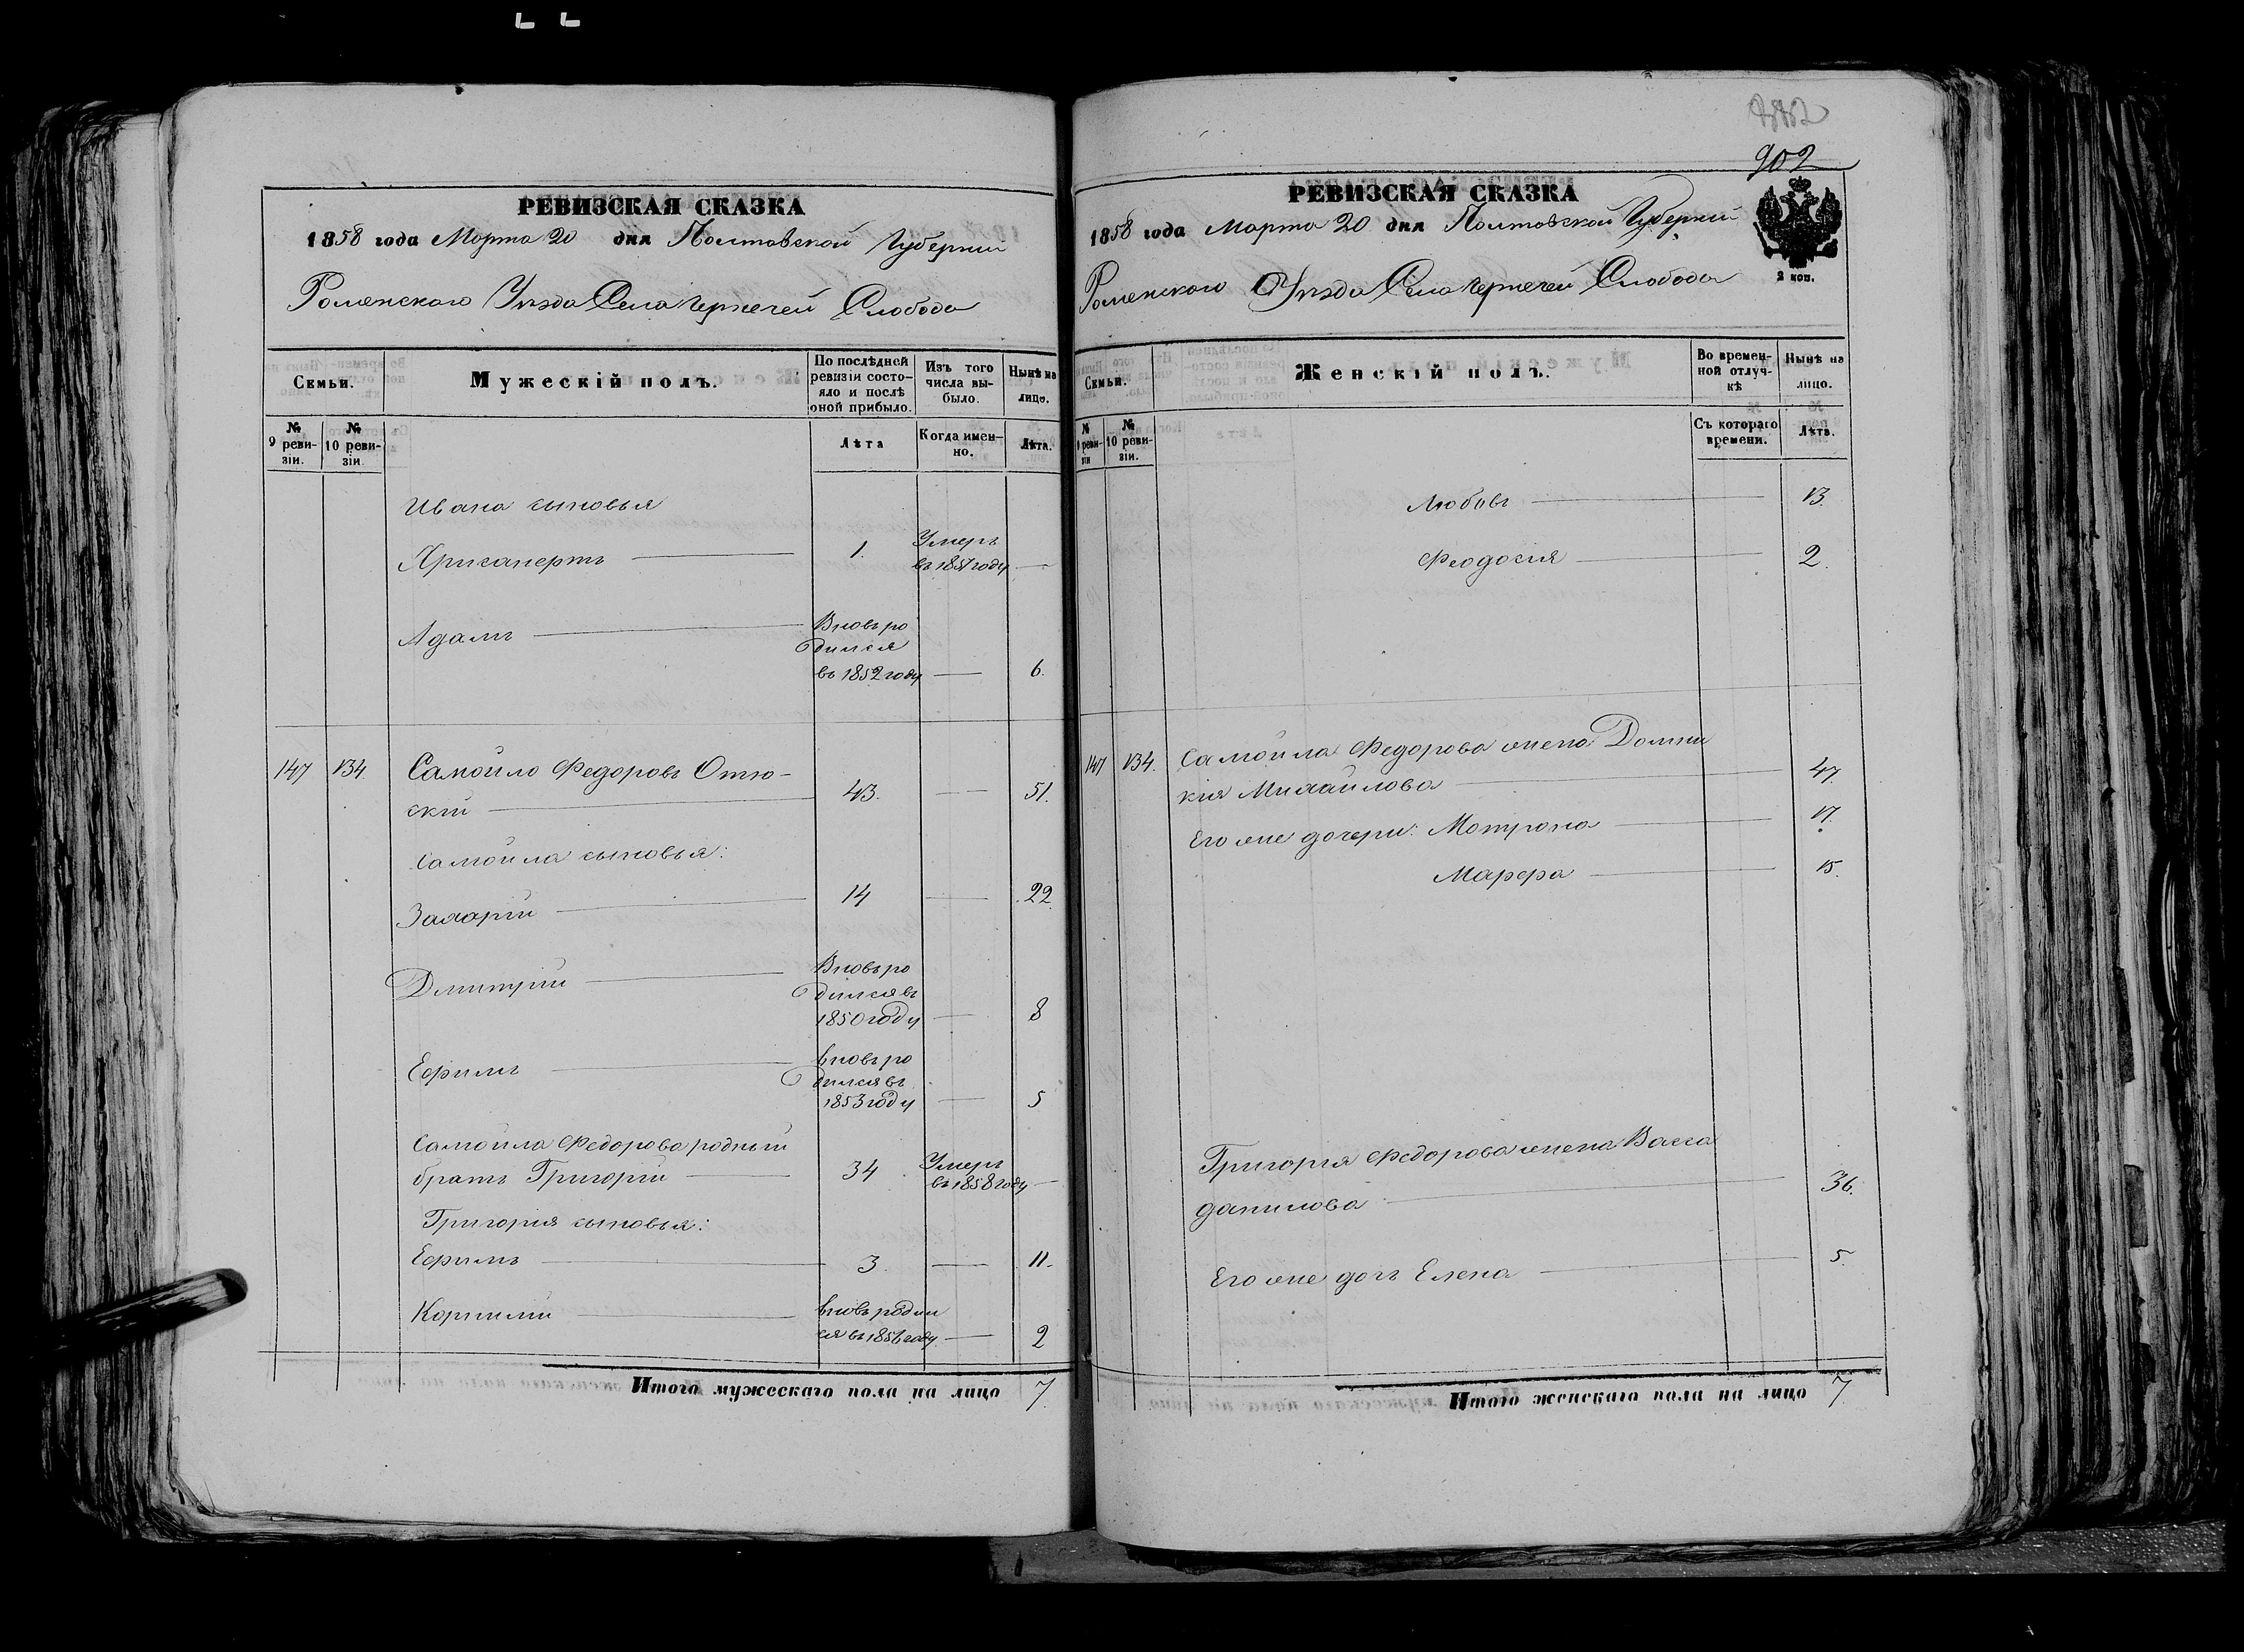 902
РЕВИЗСКАЯ СКАЗКА
1858 года Марта 20 дня Полтавской Губернии
Роменского Уезда Села Чернечей Слобода
Семьи.
Мужескій полъ.
По послѣдней ревизіи состояло и послѣ оной прибыло.
Изъ того числа выбыло.
Нынѣ на лицо.
№ 9 ревизіи.
№ 10 ревизіи.
Лѣта
Когда именно.
Лѣта.
Ивана сыновья
Хрисанфъ 1. Умеръ
въ 1857 году —
Адамъ Вновь ро
дился
въ 1852 году — 6.
147 134. Самойло Федоровъ
скій 43. — 51.
Самойла сыновья:
Захарій 14 — 22.
Дмитрій Вновь ро
дился въ
1850 году — 8
Ефимъ вновь ро
дился въ
1853 году — 5
Самойла Федорова родный
братъ Григорій 34 Умеръ
въ 1858 году —
Григорія сыновья:
Ефимъ 3. — 11.
Корнилій вновь родил
ся въ 1856 году — 2
Итого мужескаго пола на лицо 7.
РЕВИЗСКАЯ СКАЗКА
1858 года Марта 20 дня Полтавской Губерніи
Роменского Уезда Села Чернечей Слобода
2 коп.
Семьи.
Женскій полъ.
Во временной отлучкѣ
Нынѣ на лицо.
№ 9 ревизіи
№ 10 ревизіи.
Съ котораго времени.
Лѣта.
Любовь 13.
Феодосія 2.
147 134. Самойла Федорова жена Домни
кія Михайлова 47.
Его же дочери: Мотрона 17.
Марфа 15.
Григорія Федорова жена Васса
Данилова 36.
Его же дочь Елена 5.
Итого женскаго пола на лицо 7.